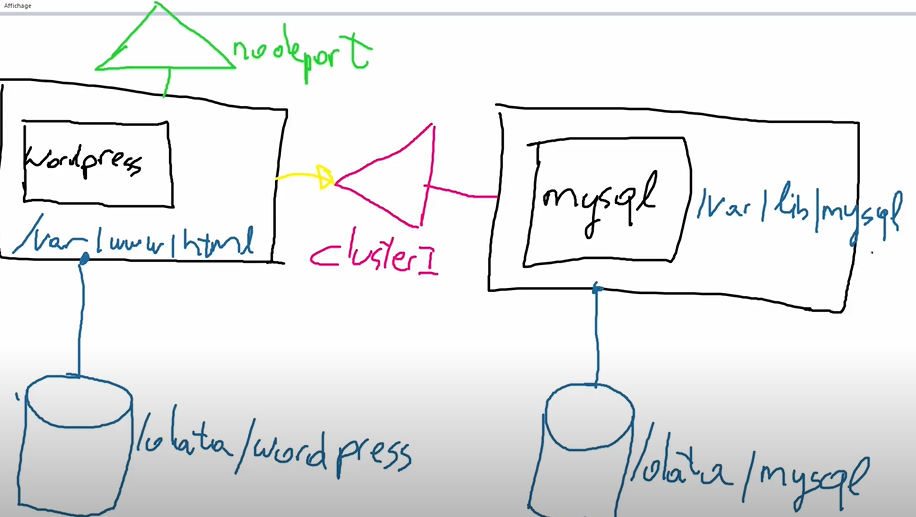 Affichage
nodeport
Wordpress
/var/www/html
clusterI
mysql
/var/lib/mysql
/data/wordpress
/data/mysql